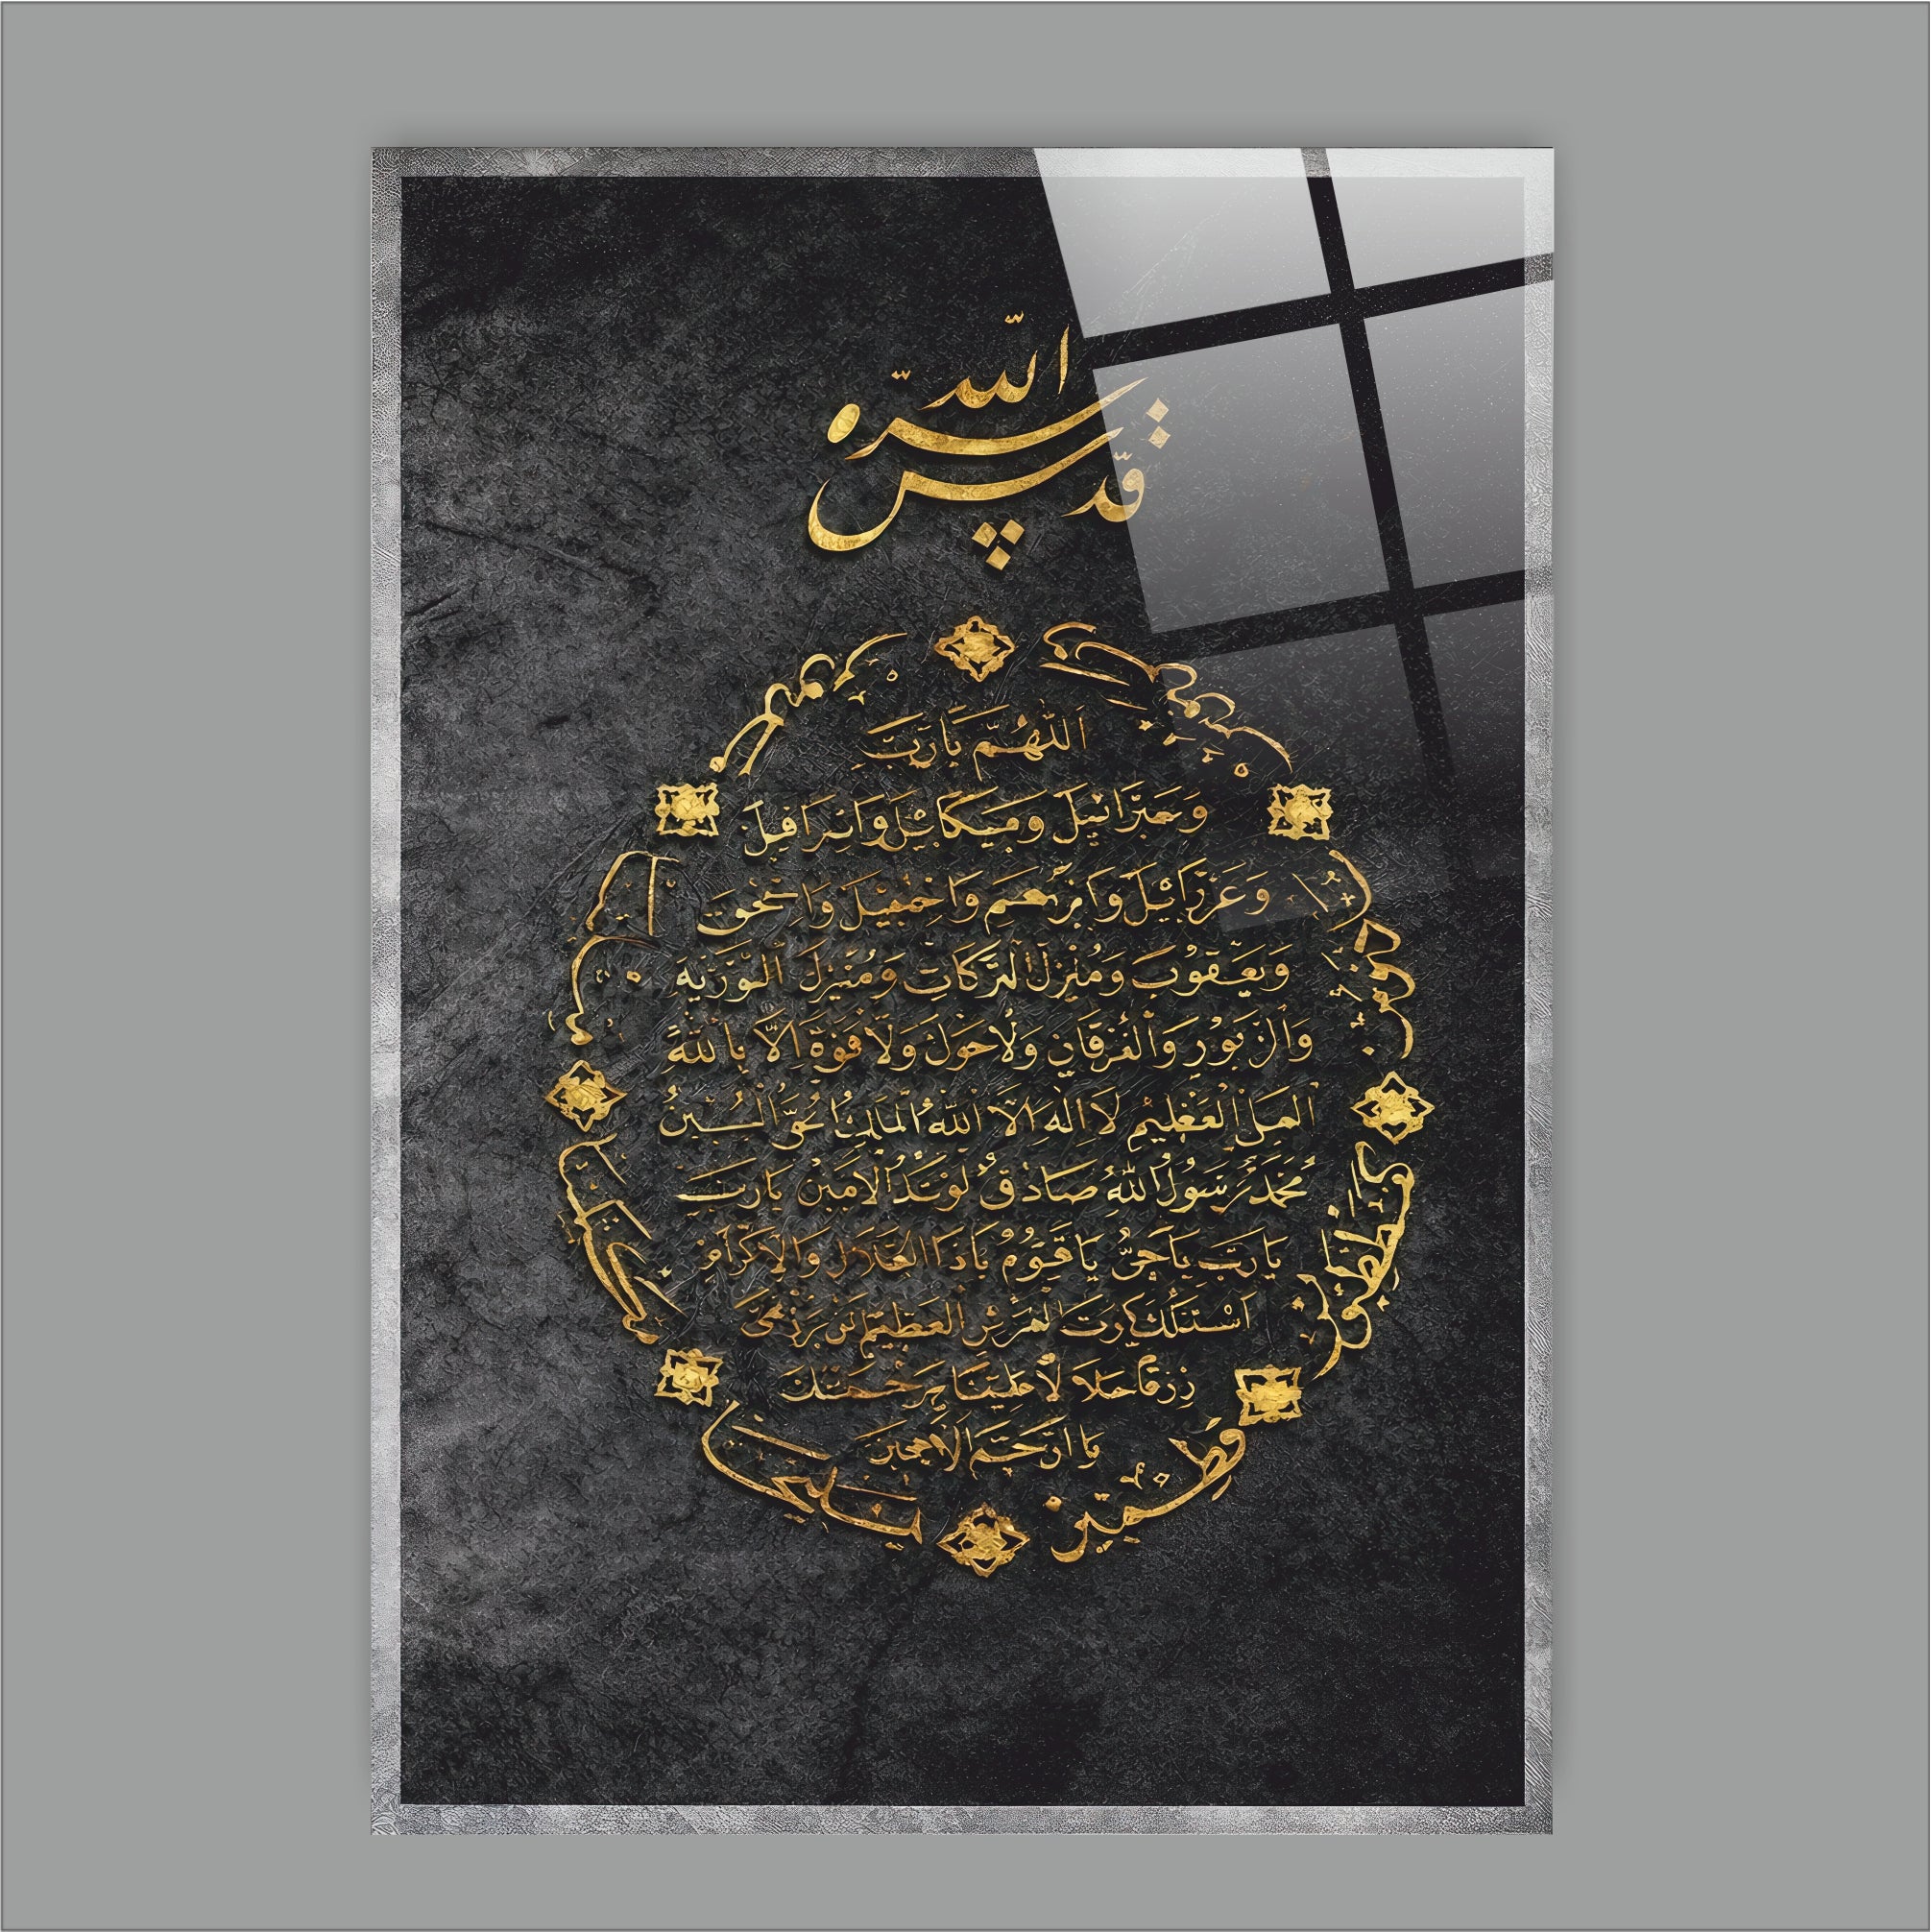 قدّس
الله
سرّه
اَللّٰهُمَّ يَارَبَّ
وَجَبْرَائيلَ وَمِيكَائِيلَ وَاِسْرَافِيلَ
وَعَزْرَائِيلَ وَاِبْرٰهِيمَ وَاِسْمٰعِيلَ وَاِسْحٰقَ
وَيَعْقُوبَ وَمُنْزِلَ الْبَرَكَاتِ وَمُنْزِلَ التَّوْرٰيةِ
وَالزَّبُورِ وَالْفُرْقَانِ وَلَاحَوْلَ وَلَاقُوَّةَ اِلَّا بِاللّٰهِ
الْعَلِىِّ الْعَظِيمِ لَا اِلٰهَ اِلَّا اللّٰهُ الْمَلِكُ الْحَقُّ الْمُبِينُ
مُحَمَّدٌ رَسُولُ اللّٰهِ صَادِقُ الْوَعْدِ الْاَمِينُ يَارَبِّ
يَارَبِّ يَاحَىُّ يَاقَيُّومُ يَاذَا الْجَلَالِ وَالْاِكْرَامِ
اَسْئَلُكَ يَارَبَّ الْعَرْشِ الْعَظِيمِ اَنْ يَرْزُقَنِى
رِزْقًا حَلَالًا طَيِّبًا بِرَحْمَتِكَ
يَا اَرْحَمَ الرَّاحِمِينَ
يمليخا
مكثلينا
مرنوش
قطمير